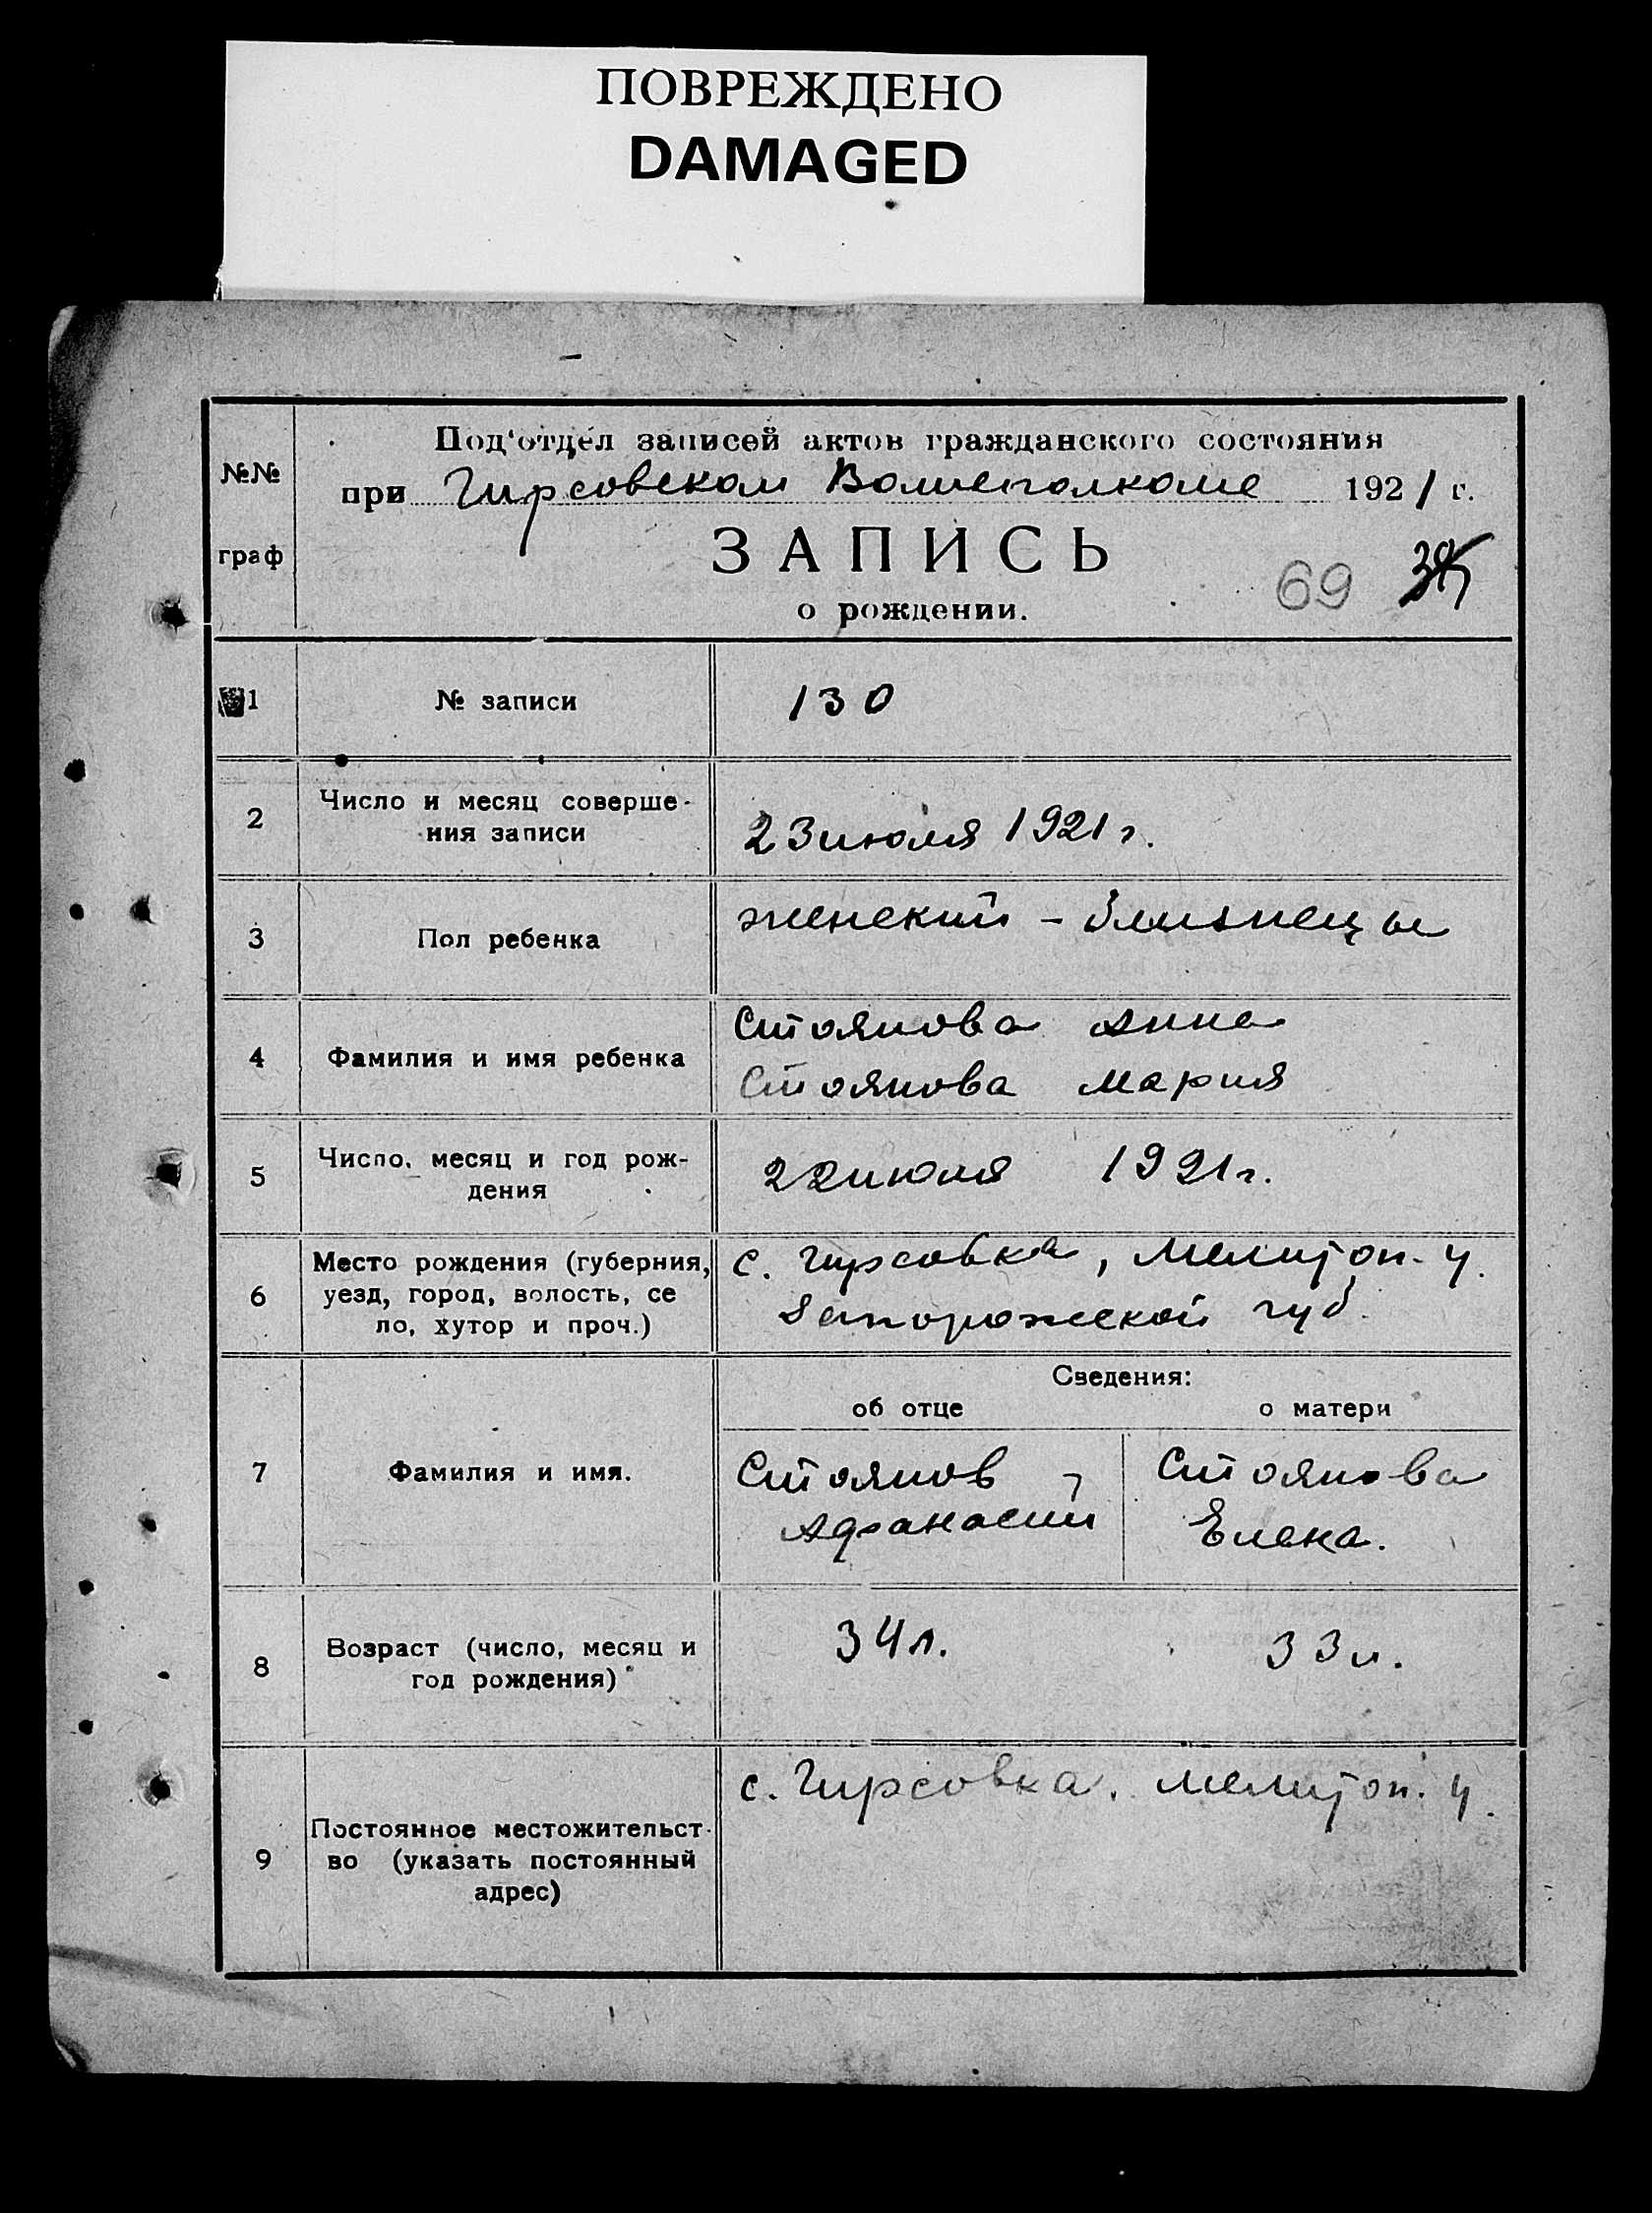 ПОВРЕЖДЕНО
DAMAGED
Под'отдел записей актов гражданского состояния
при Гирсовском Волисполкоме 1921 г.
№№
граф
ЗАПИСЬ
69
о рождении.
1 № записи 130
2 Число и месяц соверше-
ния записи
23 июля 1921 г.
3 Пол ребенка
женский – близнецы
4 Фамилия и имя ребенка
Стоянова Анна
Стоянова Мария
5 Число, месяц и год рож-
дения
22 июля 1921 г.
6 Место рождения (губерния,
уезд, город, волость, се
ло, хутор и проч.)
с. Гирсовка, Мелитоп. у.
Запорожской губ.
Сведения:
об отце о матери
7 Фамилия и имя.
Стоянов
Афанасий
Стоянова
Елена.
8 Возраст (число, месяц и
год рождения)
34 л. 33 л.
9 Постоянное местожительст-
во (указать постоянный
адрес)
с. Гирсовка. Мелитоп. у.